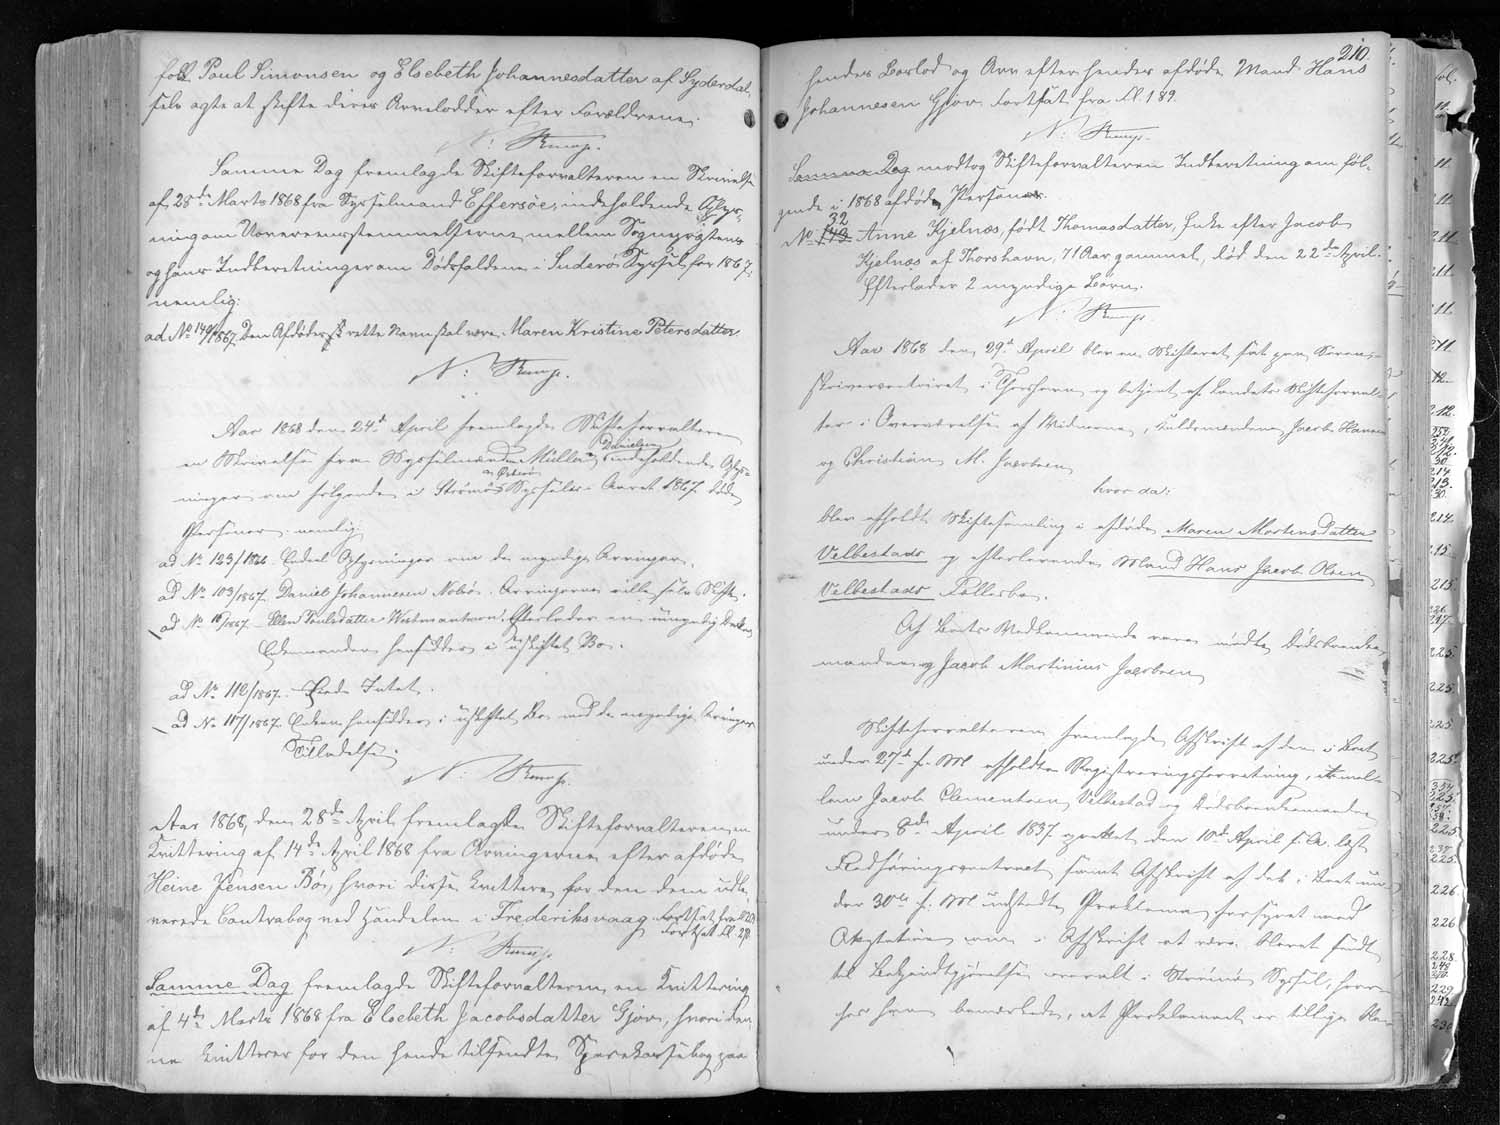 folk Poul Simonsen og Elsebeth Johannesdatter af Syderdal
selv agte at skifte deres Arvelodder efter Forældrene.
N: Rump.
Samme Dag fremlagde Skifteforvalteren en Skrivelse
af 28de Marts 1868 fra Sysselmand Effersøe, indeholdende Oplys-
ning om Uoverensstemmelserne mellem Sognepræstens
og hans Indberetninger om Dødsfaldene i Suderø Syssel for 1867,
nemlig:
ad No 149/1867. Den Afdødes rette Navn skal være Maren Kristine Petersdatter
N: Rump.
Aar 1868 den 24de April fremlagde Skifteforvalteren
en Skrivelse fra Sysselmænd Müller Danielsen indeholdende Oplys-
af Østerø
ninger om følgende i Strømø Syssel i Aaret 1867 døde
Personer, nemlig:
ad No 123/1866 Endel Oplysninger om de myndige Arvinger.
ad No 103/1867. Daniel Johannesen Nolsø. Arvingerne ville selv skifte.
ad No /1867. Ellen Poulsdatter Vestmanhavn. Efterlader en umyndig
Enkemanden hensidder i uskiftet Bo.
ad No 112/1867. Eiede Intet.
ad No 117/1867. Enken hensidder i uskiftet Bo med de myndige Arvingers
Tilladelse.
N: Rump.
Aar 1868, den 28de April fremlagde Skifteforvalteren en
Kvittering af 14de April 1868 fra Arvingerne efter afdøde
Heine Jensen Bø, hvori disse kvittere for den dem udle-
verede Contrabog ved Handelen i Frederiksvaag Fortsat fra
Fortsat Fl.
N: Rump.
Samme Dag fremlagde Skifteforvalteren en Kvittering
af 4de Marts 1868 fra Elsebeth Jacobsdatter Gjov, hvori den-
ne kvitterer for den hende tilsendte Sparekassebog paa
210.
hendes Boslod og Arv efter hendes afdøde Mand Hans
Johannesen Gjov. Fortsat fra Fl. 189.
N: Rump.
Samme Dag modtog Skifteforvalteren Indberetning om føl-
gende i 1868 afdøde Person
32
No 149 Anne Kjelnæs, født Thomasdatter, Enke efter Jacob
Kjelnæs af Thorshavn, 71 Aar gammel, død den 22de April.
Efterlader 2 myndige Børn.
N: Rump.
Aar 1868 den 29de April blev en Skifteret sat paa Soren-
skrivercontoiret i Thorshavn og betjent af Landets Skifteforval-
ter i Overværelse af Vidnerne, Fuldmændene Jacob Hansen
og Christian M. Jacobsen
hvor da:
blev afholdt Skiftesamling i afdøde Maren Mortensdatter
Velbestads og efterlevende Mand Hans Jacob Olsen
Velbestads Fællesbo.
Af Boets Vedkommende vare mødte Dødsboenke-
manden og Jacob Martinius Jacobsen
Skifteforvalteren fremlagde Afskrift af den i Boet
under 27de f. M. afholdte Registreringsforretning, mel-
lem Jacob Clementsen Velbestad og Dødsboenkemanden
under 8de April 1837 oprettet den 10de April s. A. læst
Fledføringscontract samt Afskrift af det i Boet un-
der 30te f. M. udstedte Proklama forsynet med
Paategning om i Afskrift at være blevet sendt
til Bekjendtgjørelse overalt i Strømø Syssel, hvor-
hos han bemærkede, at Proklamaet er tillige